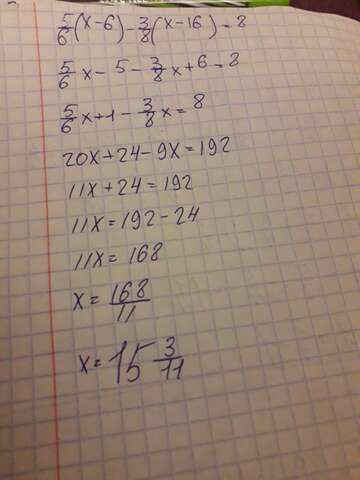 5/6(x-6)-3/8(x-16)=8
5/6x-5-3/8x+6=8
5/6x+1-3/8x=8
20x+24-9x=192
11x+24=192
11x=192-24
11x=168
x=168/11
x=15 3/11